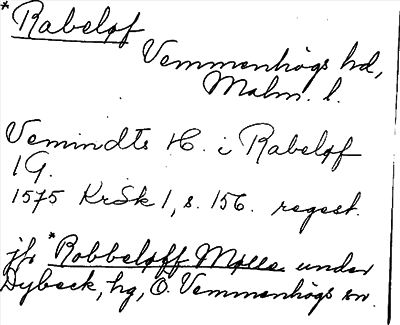 *Rabeløf
Vemmenhögs hd,
Malm. l.
Vemindts H. i Rabeløf
1G.
1575 KrSk 1, s. 156. regest.
jfr *Robbeløff Mølle under
Dybeck, hg, Ö. Vemmenhögs sn.